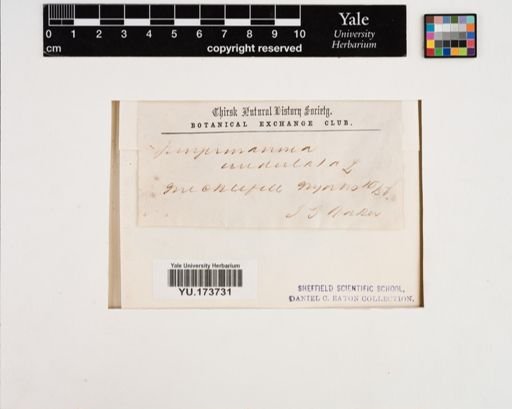 0 1 2 3 4 5 6 7 8 9 10
cm
copyright reserved
Yale
University
Herbarium
Thirsk Natural History Society.
BOTANICAL EXCHANGE CLUB.
Jungermannia
undulata L
Micklefell
J G Baker
Yale University Herbarium
YU.173731
SHEFFIELD SCIENTIFIC SCHOOL,
DANIEL C. EATON COLLECTION.